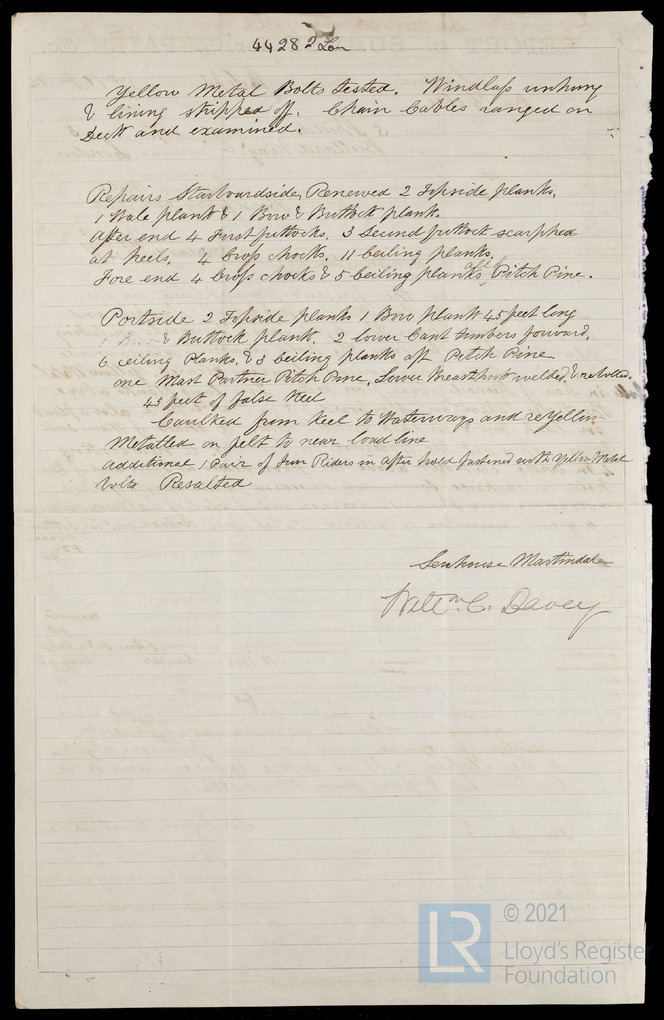 44282 Lon
Yellow Metal Bolts tested. Windlass unhung
& lining stripped off. Chain Cables ranged on
Deck and examined.
Repairs Starboardside, Renewed 2 Topside planks,
1 Wale plank & 1 Bow & Buttock plank.
After end 4 First futtocks. 3 Second futtock scarphed
at heels, 4 Crofs chocks. 11 Ceiling planks,
Fore end 4 Crofs chocks & 5 Ceiling planks, Pitch Pine.
Portside 2 Topside planks 1 Bow plank 45 feet long
& Buttock plank. 2 lower Cant timbers forward,
6 ceiling Planks, & 3 Ceiling planks aft Pitch Pine
one Mast Partner Pitch Pine, Lower Breasthook welded, & rebolted.
45 feet of false Keel
Caulked from Keel to Waterways and re Yellow
Metalled on felt to near load line
additional 1 Pair of Iron Riders in after hold fastened with Yellow Metal
bolts Resalted
Senhouse Martindale
Willm. C. Davey
LR
© 2021
Lloyd's Register
Foundation